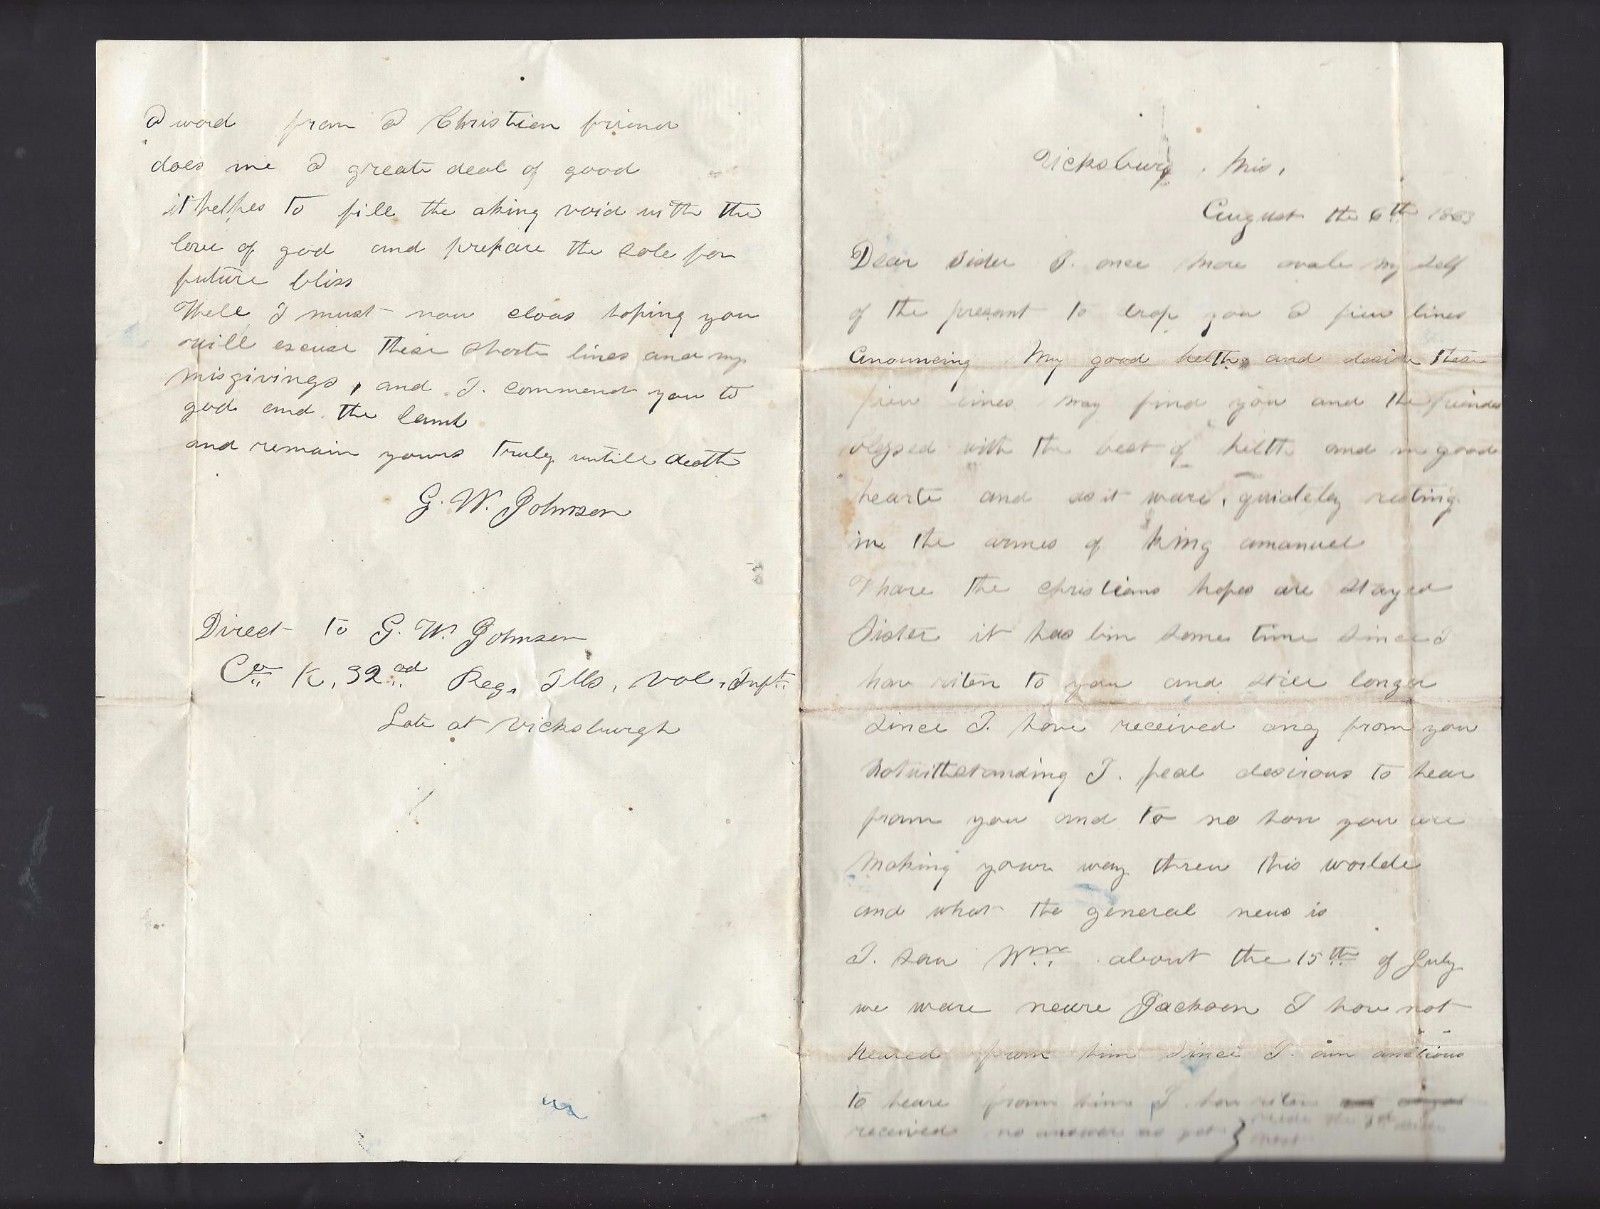 Vicksburg, Mis,
August the 6th 1863
Dear Sister I. once more avale my self
of the present to drop you a few lines
Anouncing My good helth, and desire these
few lines may find you and the friends
blessed with the best of helth and in good
hearte and as it ware, quietely resting
in the armes of King amanuel
Thare the christians hopes are stayed
Sister it has bin some time since I
have riten to you and still longer
since I. have received any from you
Notwithstanding I. feal desirous to hear
from you and to no how you are
Making your way threw this worlde
and what the general news is
I. saw Wm about the 15th of July
we ware neare Jackson I have not
heared from him since I. am anctious
to heare from him I have riten
received no answer as yet } side the
A word from A Christian friend
does me A greate deal of good
it helpes to fill the aking void with the
love of god and prepare the sole for
future bliss
Well I must now cloas hoping you
will excuse these shorte lines and my
misgivings, and I. commend you to
god and the lamb
and remain yours truly untill death
G. W. Johnson
Direct to G. W. Johnson
Co K, 32nd Reg, Ills, Vol, Inft.
Late at Vicksburgh